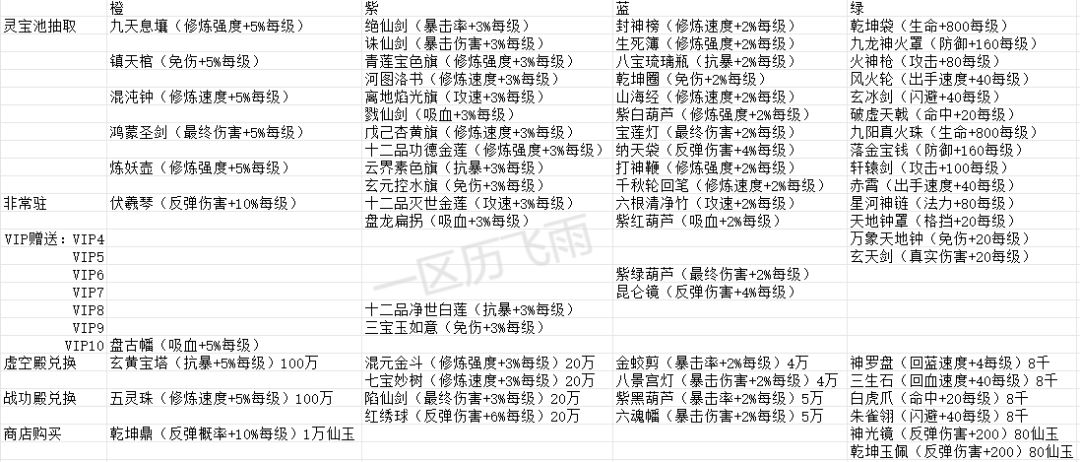 橙 紫 蓝 绿
灵宝池抽取 九天息壤（修炼强度+5%每级） 绝仙剑（暴击率+3%每级） 封神榜（修炼速度+2%每级） 乾坤袋（生命+800每级）
诛仙剑（暴击伤害+3%每级） 生死薄（修炼强度+2%每级） 九龙神火罩（防御+160每级）
镇天棺（免伤+5%每级） 青莲宝色旗（修炼强度+3%每级） 八宝琉璃瓶（抗暴+2%每级） 火神枪（攻击+80每级）
河图洛书（修炼速度+3%每级） 乾坤圈（免伤+2%每级） 风火轮（出手速度+40每级）
混沌钟（修炼速度+5%每级） 离地焰光旗（攻速+3%每级） 山海经（修炼速度+2%每级） 玄冰剑（闪避+40每级）
戮仙剑（吸血+3%每级） 紫白葫芦（修炼强度+2%每级） 破虚天戟（命中+20每级）
鸿蒙圣剑（最终伤害+5%每级） 戊己杏黄旗（修炼速度+3%每级） 宝莲灯（最终伤害+2%每级） 九阳真火珠（生命+800每级）
十二品功德金莲（修炼强度+3%每级） 纳天袋（反弹伤害+4%每级） 落金宝钱（防御+160每级）
炼妖壶（修炼强度+5%每级） 云界素色旗（抗暴+3%每级） 打神鞭（修炼强度+2%每级） 轩辕剑（攻击+100每级）
玄元控水旗（免伤+3%每级） 千秋轮回笔（修炼速度+2%每级） 赤霄（出手速度+40每级）
非常驻 伏羲琴（反弹伤害+10%每级） 十二品灭世金莲（攻速+3%每级） 六根清净竹（攻速+2%每级） 星河神链（法力+80每级）
盘龙扁拐（吸血+3%每级） 紫红葫芦（吸血+2%每级） 天地钟罩（格挡+20每级）
VIP赠送：VIP4 万象天地钟（免伤+20每级）
VIP5 玄天剑（真实伤害+20每级）
VIP6 紫绿葫芦（最终伤害+2%每级）
VIP7 昆仑镜（反弹伤害+4%每级）
VIP8 十二品净世白莲（抗暴+3%每级）
VIP9 三宝玉如意（免伤+3%每级）
VIP10 盘古幡（吸血+5%每级）
虚空殿兑换 玄黄宝塔（抗暴+5%每级）100万 混元金斗（修炼强度+3%每级）20万 金蛟剪（暴击率+2%每级）4万 神罗盘（回蓝速度+4每级）8千
七宝妙树（修炼速度+3%每级）20万 八景宫灯（暴击伤害+2%每级）4万 三生石（回血速度+40每级）8千
战功殿兑换 五灵珠（修炼速度+5%每级）100万 陷仙剑（最终伤害+3%每级）20万 紫黑葫芦（暴击率+2%每级）5万 白虎爪（命中+20每级）8千
红绣球（反弹伤害+6%每级）20万 六魂幡（暴击伤害+2%每级）5万 朱雀翎（闪避+40每级）8千
商店购买 乾坤鼎（反弹概率+10%每级）1万仙玉 神光镜（反弹伤害+200）80仙玉
乾坤玉佩（反弹伤害+200）80仙玉
一区历飞雨